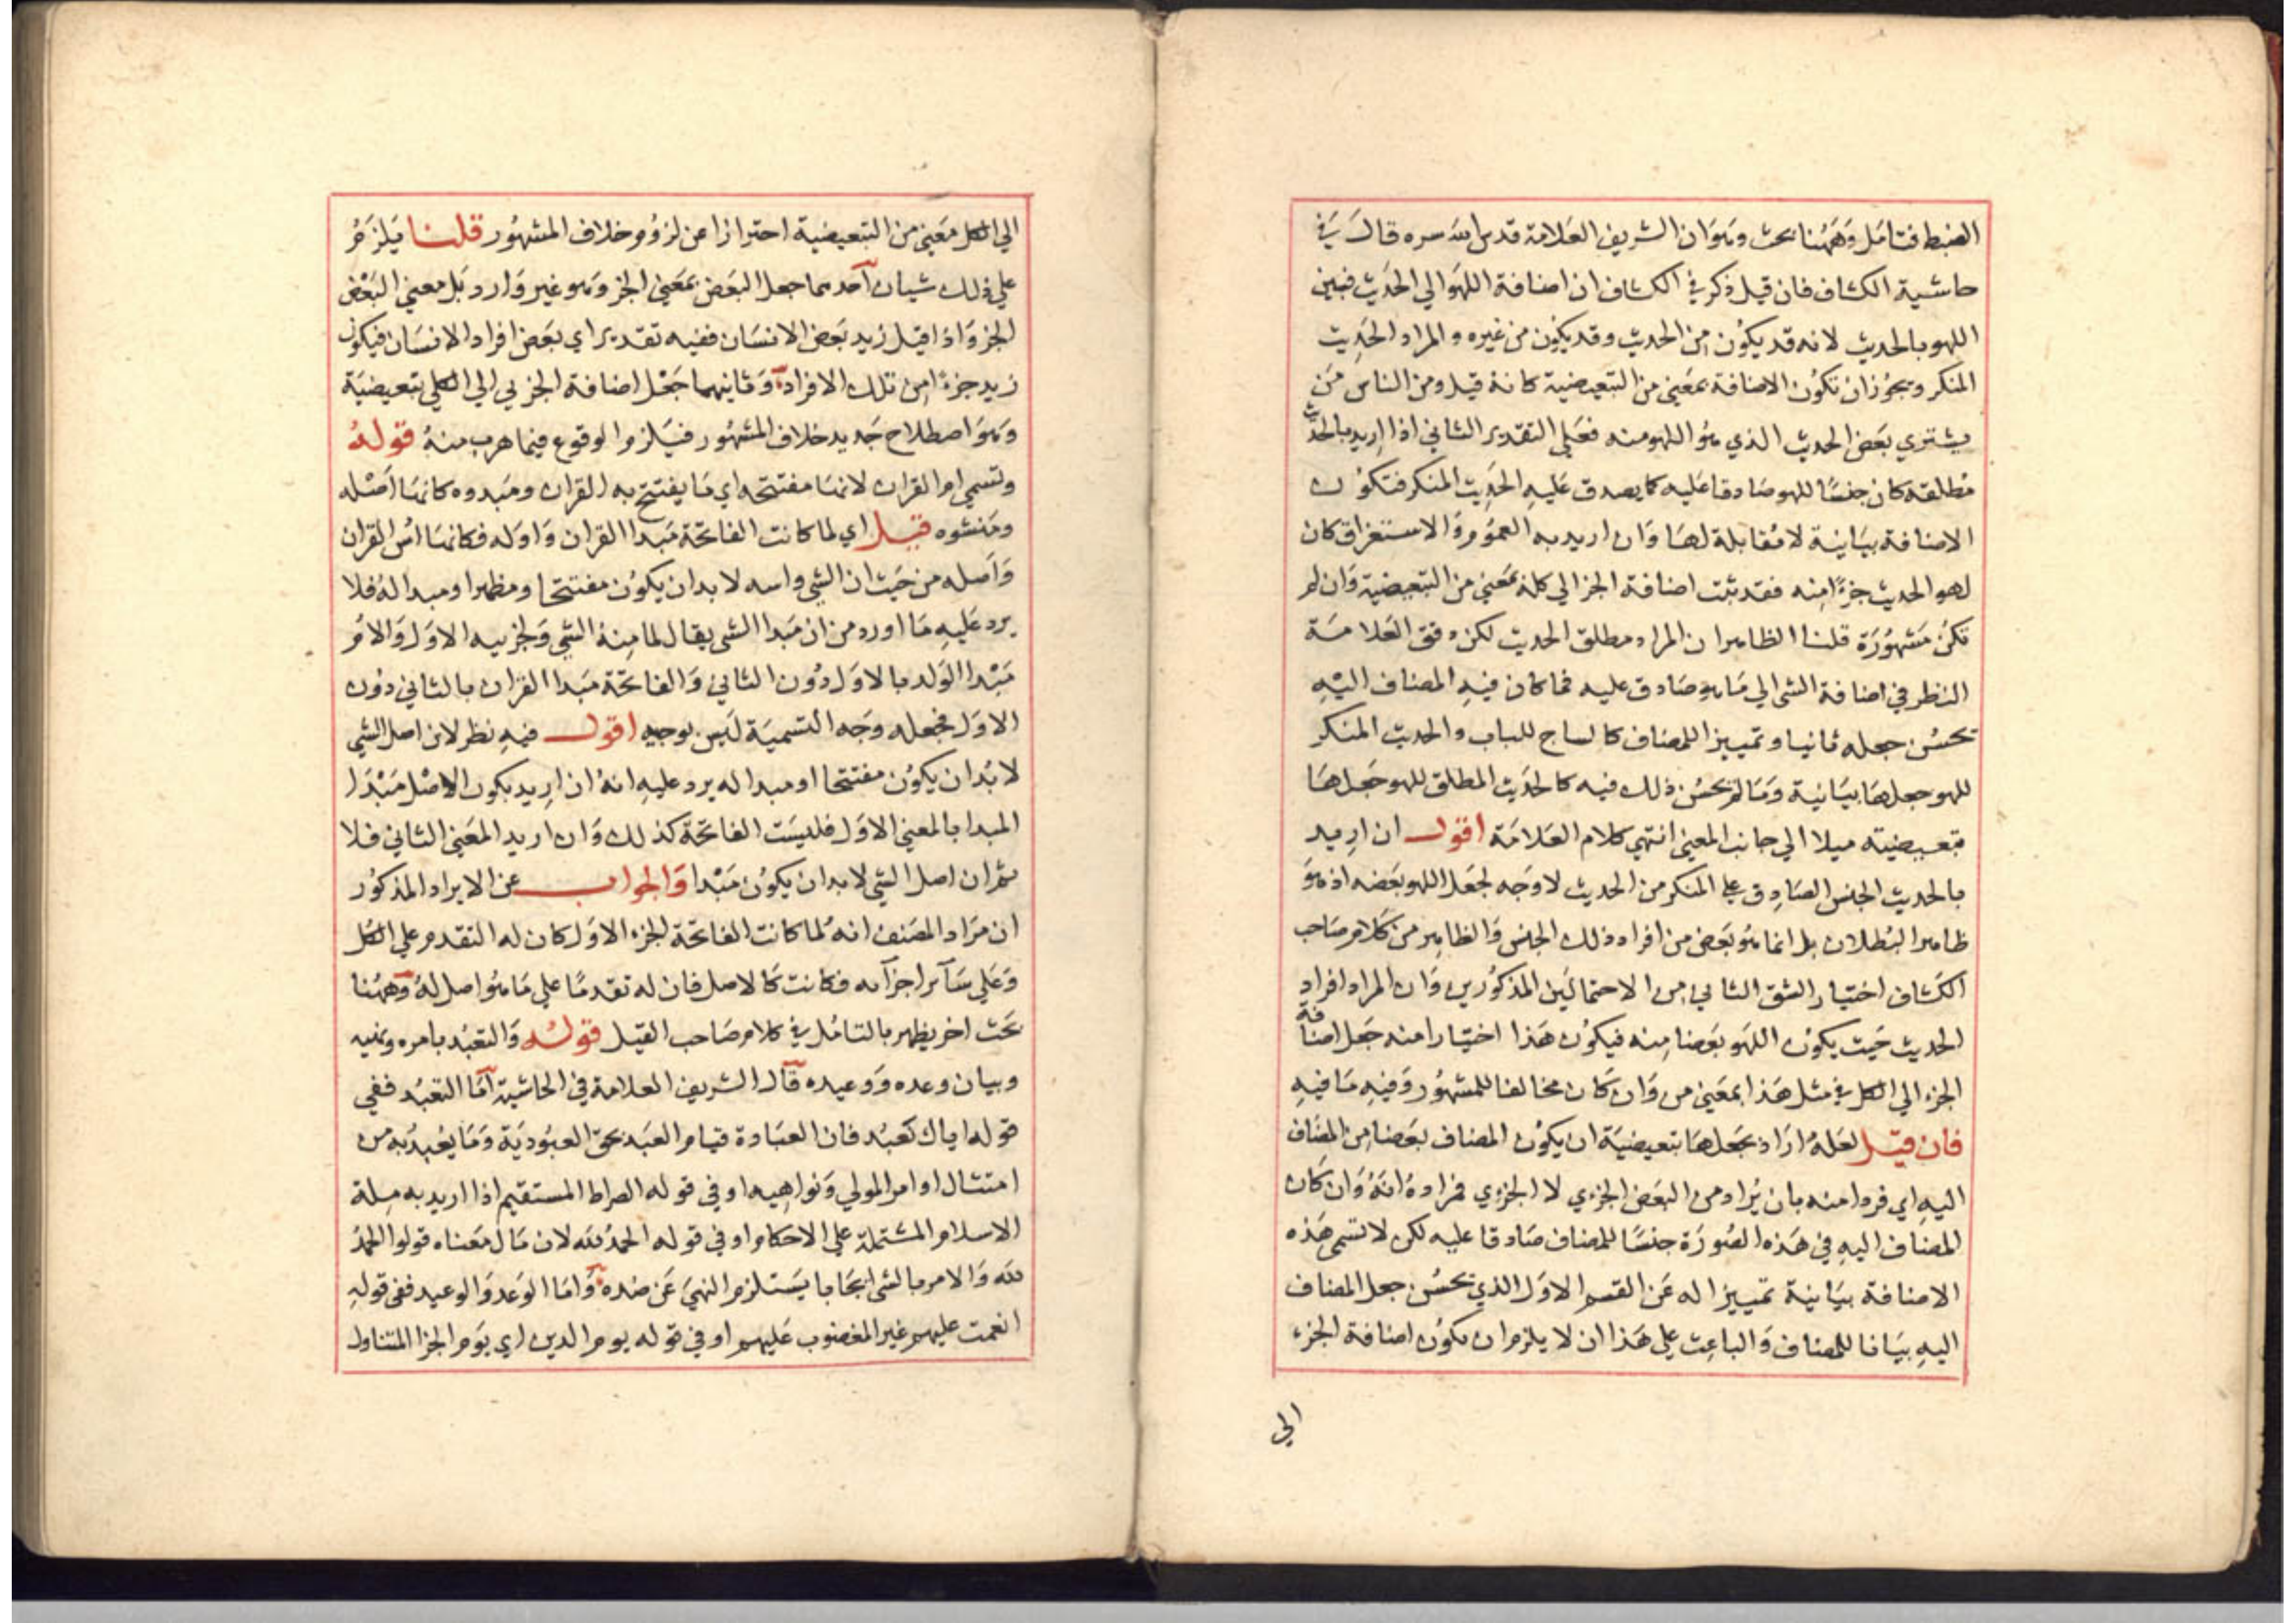 الضبط فتامل وههنا بحث وهو ان الشريف العلامة قدس الله سره قال في
حاشية الكشاف فان قيل ذكر في الكشاف ان اضافة اللهو الي الحديث فبين
اللهو بالحديث لانه قد يكون من الحديث وقد يكون من غيره والمراد الحديث
المنكر ويجوز ان تكون الاضافة بمعني من التبعيضية كانه قيل ومن الناس من
يشتري بعض الحديث الذي هو اللهو منه فعلي التقدير الثاني اذا اريد بالحديث
مطلقه كان جنسا للهو صادقا عليه كما يصدق عليه الحديث المنكر فتكون
الاضافة بيانية لا مقابلة لها وان اريد به العموم والاستغراق كان
لهو الحديث جزءا منه فقد ثبت اضافة الجز الي كله بمعني من التبعيضية وان لم
تكن مشهورة قلنا الظاهر ان المراد مطلق الحديث لكن دقق العلامة
النظر في اضافة الشي الي ما هو صادق عليه فما كان فيه المضاف اليه
يحسن جعله ثانيا وتمييزا للمضاف كالساج للباب والحديث المنكر
للهو جعلها بيانية وما لم يحسن ذلك فيه كالحديث المطلق للهو جعلها
تبعيضيته ميلا الي جانب المعني انتهي كلام العلامة اقول ان اريد
بالحديث الجنس الصادق علي المنكر من الحديث لا وجه لجعل اللهو بعضه اذ هو
ظاهر البطلان بل انما هو بعض من افراد ذلك الجنس والظاهر من كلام صاحب
الكشاف اختيار الشق الثاني من الاحتمالين المذكورين وان المراد افراد
الحديث حيث يكون اللهو بعضا منه فيكون هذا اختيارا منه جعل اضافة
الجزء الي الكل في مثل هذا بمعني من وان كان مخالفا للمشهور وفيه ما فيه
فان قيل لعله اراد بجعلها تبعيضية ان يكون المضاف بعضا من المضاف
اليه اي فردا منه بان يراد من البعض الجزءي لا الجزءي فمراده انه وان كان
المضاف اليه في هذه الصورة جنسا للمضاف صادقا عليه لكن لا تسمي هذه
الاضافة بيانية تمييزا له عن القسم الاول الذي يحسن جعل المضاف
اليه بيانا للمضاف والباعث علي هذا ان لا يلزم ان يكون اضافة الجزء
الي
الي الكل معني من التبعيضية احترازا عن لزوم خلاف المشهور قلنا يلزم
علي ذلك شيان احدهما جعل البعض بمعني الجز وهو غير وارد بل معني البعض
الجز واذا قيل زيد بعض الانسان ففيه تقدير اي بعض افراد الانسان فيكون
زيد جزءا من تلك الافراد وثانيهما جعل اضافة الجزيي الي الكلي تبعيضية
وهو اصطلاح جديد خلاف المشهور فيلزم الوقوع فيما هرب منه قوله
وتسمي ام القران لانها مفتتحه اي ما يفتتح به القران ومبدوه كانها اصله
ومنشوه قيل اي لما كانت الفاتحة مبدا القران واوله فكانها اس القران
واصله من حيث ان الشي واسه لا بد ان يكون مفتتحا ومظهرا ومبدا له فلا
يرد عليه ما اورد من ان مبدا الشي يقال لما منه الشي ولجزييه الاول والام
مبدا الولد بالاول دون الثاني والفاتحة مبدا القران بالثاني دون
الاول فجعله وجه التسمية ليس بوجيه اقول فيه نظر لان اصل الشي
لا بد ان يكون مفتتحا او مبدا له يرد عليه انه ان اريد بكون الاصل مبدا
المبدا بالمعني الاول فليست الفاتحة كذلك وان اريد المعني الثاني فلا
نثم ان اصل الشي لا بد ان يكون مبدا والجواب عن الايراد المذكور
ان مراد المصنف انه لما كانت الفاتحة الجزء الاول كان له التقدم علي الكل
وعلي ساير اجزآيه فكانت كالاصل فان له تقدما علي ما هو اصل له وههنا
بحث اخر يظهر بالتامل في كلام صاحب القيل قوله والتعبد بامره ونهيه
وبيان وعده ووعيده قال الشريف العلامة في الحاشية اما التعبد ففي
قوله اياك نعبد فان العبادة قيام العبد بحق العبودية وما يعبد به من
امتثال اوامر المولي ونواهيه او في قوله الصراط المستقيم اذا اريد به ملة
الاسلام المشتملة علي الاحكام او في قوله الحمد لله لان مال معناه قولوا الحمد
لله والامر بالشي ايجابا يستلزم النهي عن ضده واما الوعد والوعيد ففي قوله
انعمت عليهم غير المغضوب عليهم او في قوله يوم الدين اي يوم الجزا المتناول